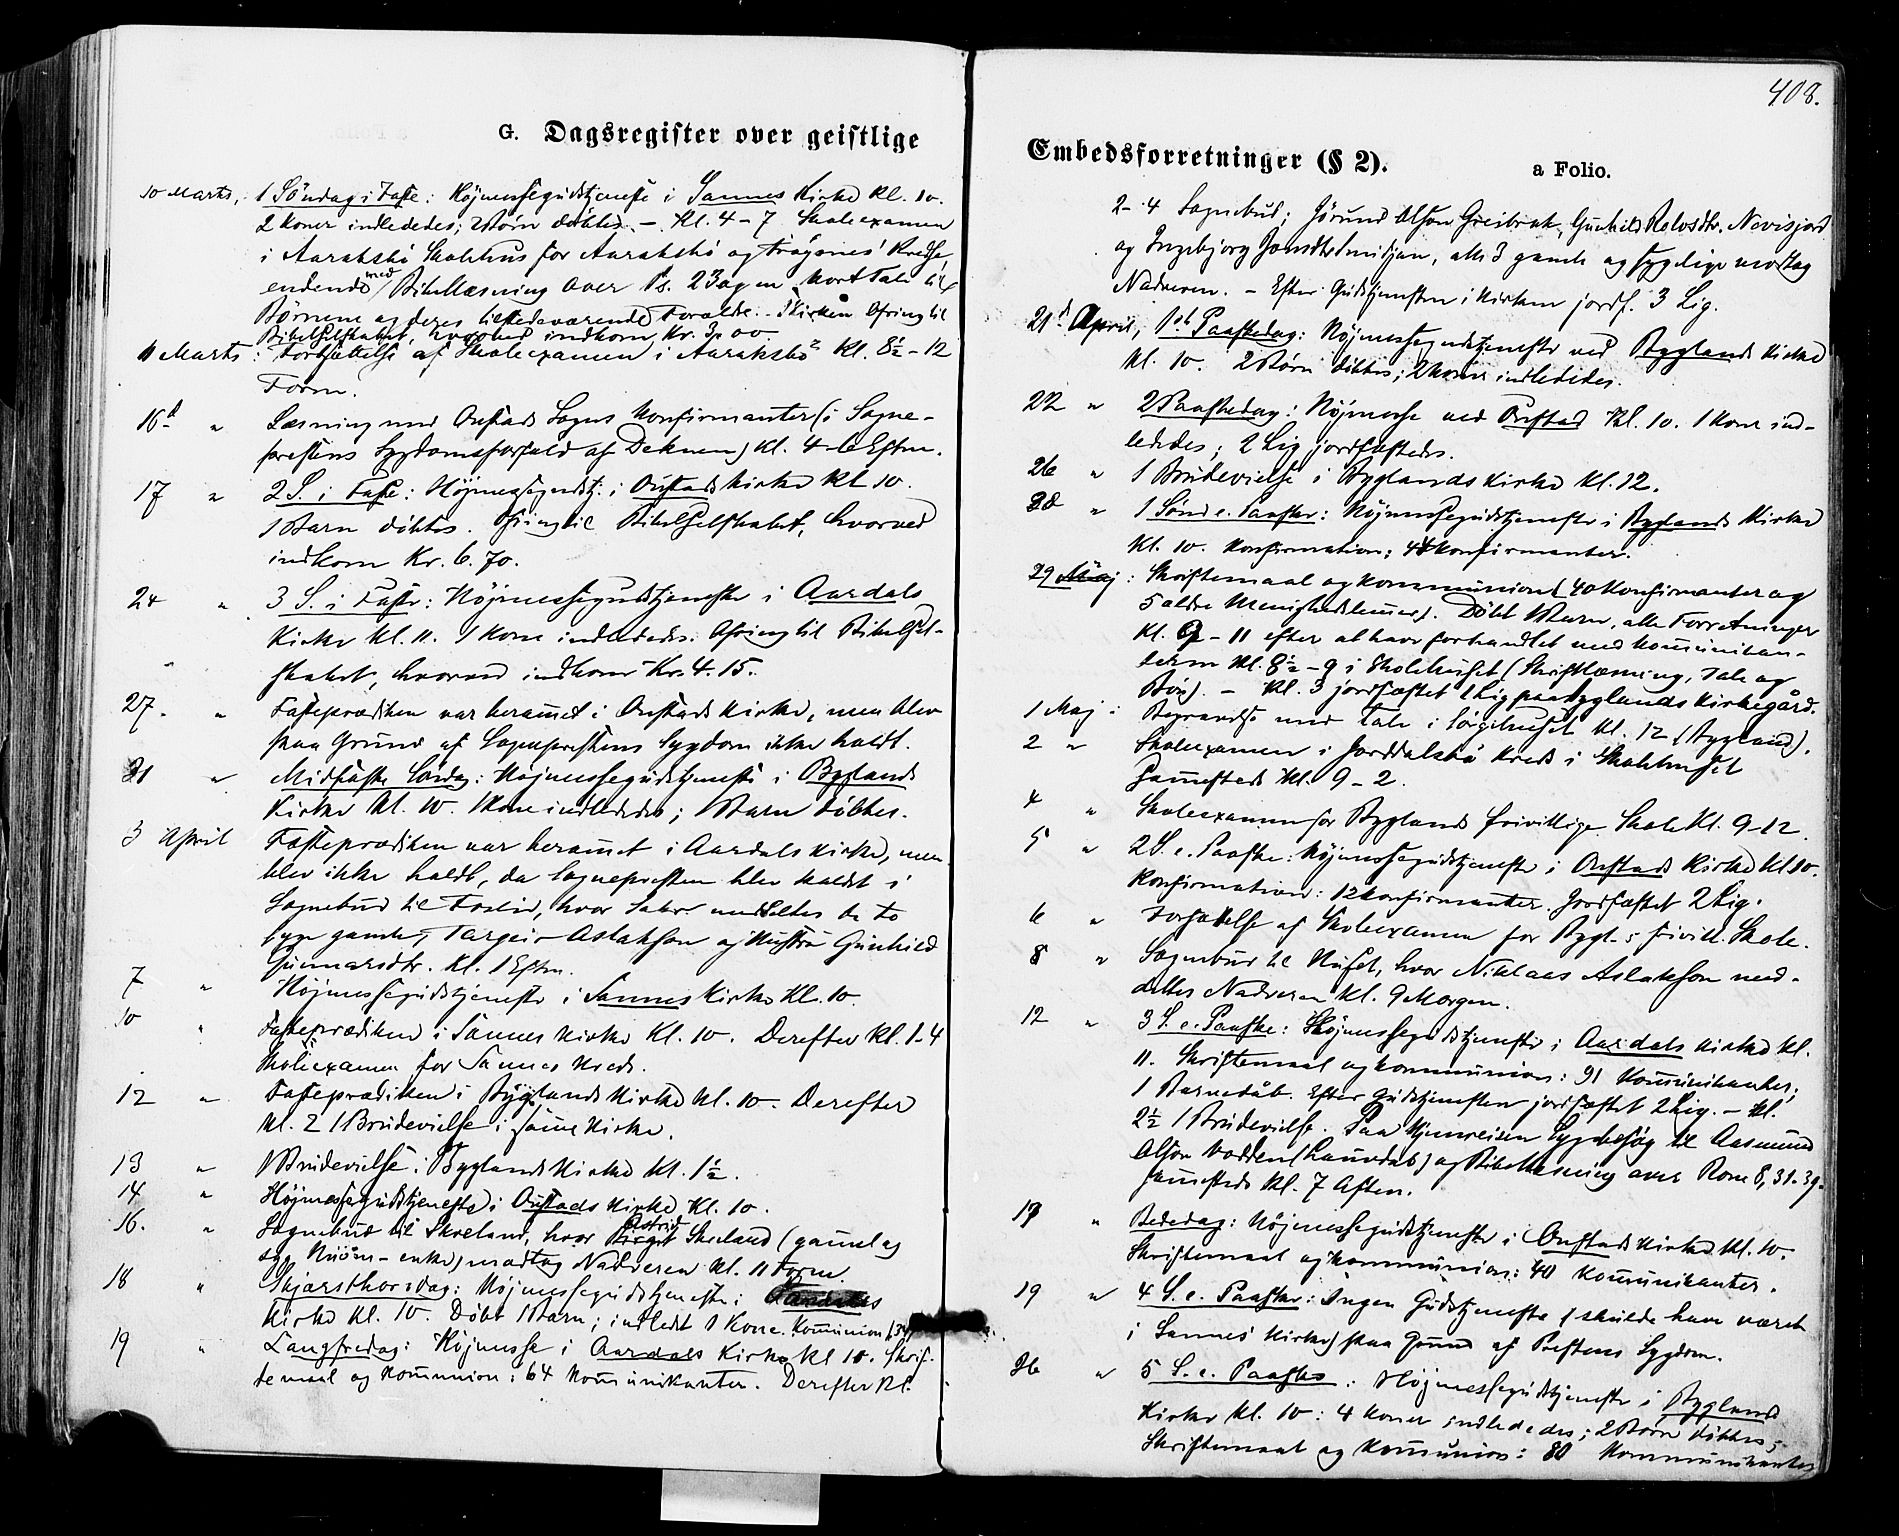 408.
G. Dagsregister over geistlige
Embedsforretninger (§ 2).
a Folio.
10 Marts, 1 Söndag i Faste: Højmessegudstjeneste i Sannes Kirke Kl. 10.
2 Koner indlededes; 2 Børn døbtes. – Kl. 4–7 Skoleexamen
i Aurakshø Skolehus for Aurakshø og Fragsnes' Kredse,
endende med Bibellæsning over Ps. 23 og en kort Tale til
Børnene og deres tilstedeværende Forældre. I Kirken Ofring til
Bibelselskabet, hvorved indkom Kr. 3,00
11 Marts: Fortsættelse af Skoleexamen i Aurakshø Kl. 8½–12
Form.
16d " Læsning med Oustads Sogns Konfirmanter (i Sogne-
prestens Sygdomsforfald af Deknen) Kl. 4–6 Eftm.
17 " 2 S. i Faste: Højmessegudstj. i Oustads Kirke Kl 10.
1 Barn døbtes. Ofring til Bibelselskabet, hvorved
indkom Kr. 6.70.
24 " 3 S. i Faste: Højmessegudstjeneste i Aardals
Kirke Kl. 11. 1 Kone indlededes. Ofring til Bibelsel-
skabet, hvorved indkom Kr. 4.15.
27. " Fasteprædiken var beramet i Oustads Kirke, men blev
paa Grund af Sogneprestens Sygdom ikke holdt.
31 " Midfaste Söndag: Højmessegudstjeneste i Byglands
Kirke Kl. 10. 1 Kone indlededes; 1 Barn døbtes.
3 April Fasteprædiken var beramet i Aardals Kirke, men
blev ikke holdt, da Sognepresten blev kaldt i
Sognebud til Froslid, hvor Sakr. meddeltes de to
syge gamle, Targeir Aslaksson og Hustru Gunhild
Gunnarsdtr. Kl. 1 Eftm.
7 " Højmessegudstjeneste i Sannes Kirke Kl. 10.
10 " Fasteprædiken i Sannes Kirke Kl. 10. Derefter Kl. 1–4
Skoleexamen for Sannes Kreds.
12 " Fasteprædiken i Byglands Kirke Kl. 10. Derefter
Kl. 2 1 Brudevielse i samme Kirke.
13 " 1 Brudevielse i Byglands Kirke Kl. 1½.
14 " Højmessegudstjeneste i Oustads Kirke Kl. 10.
16. " Sognebud til Skreland, hvor Astrid Skreland (gammel og
syg Enke) modtog Nadveren Kl. 11 Form.
18 " Skjærsthorsdag: Højmessegudstjeneste i
Kirke Kl. 10. Døbt 1 Barn; indledt 1 Kone. Kommunion
19 " Langfredag: Højmesse i Aardals Kirke Kl 10. Skrif-
temaal og Kommunion: 64 Kommunikanter. Derefter Kl.
2–4 Sognebud; Jörund Olson Greibrok, Gunhild Rolvsdtr. Nevisjord
og Ingebjorg Jonsdtr, alle 3 gamle og sygelige modtog
Nadveren. – Efter Gudstjenesten i Kirken jordf. 3 Lig.
21d April, 1ste Paaskedag: Højmessegudstjeneste ved Byglands Kirke
Kl. 10. 2 Børn døbtes; 2 Koner indlededes.
22 " 2 Paaskedag: Højmesse ved Oustad Kl. 10. 1 Kone ind-
lededes; 2 Lig jordfæstedes.
26 " 1 Brudevielse i Byglands Kirke Kl. 12.
28 " 1 Sönd e. Paaske: Højmessegudstjeneste i Byglands Kirke
Kl. 10. Konfirmation; Konfirmanter.
29 Maj: Skriftemaal og Kommunion (40 Konfirmanter og
5 ældre Menighedslemmer). Døbt 1 Barn, alle Forretninger
Kl. 9–11 efter at have forhandlet med Kommunikan-
terne Kl. 8½–9 i Skolehuset (Skriftlæsning, Tale og
Bön). – Kl. 3 jordfæstet 1 Lig paa Byglands Kirkegård.
1 Maj: Begravelse med Tale i Sörgehuset Kl. 12 (Bygland).
2 " Skoleexamen i Jorddalsbø Kreds i Skolehuset
sammesteds Kl. 9–2.
4 " Skoleexamen for Byglands frivillige Skole Kl. 9–12.
5 " 2 S. e. Paaske: Højmessegudstjeneste i Oustads Kirke Kl 10.
Konfirmation: 12 Konfirmanter. Jordfæstet 2 Lig.
6 " Forsættelse af Skoleexamen for Bygl–s frivill. Skole.
8 " Sognebud til Huset, hvor Niklaas Aslakson med-
deltes Nadveren Kl. 9 Morgen.
12 " 3 S. e. Paaske: Højmessegudstjeneste i Aardals Kirke Kl.
11. Skriftemaal og Kommunion: 91 Kommunikanter;
1 Barnedåb. Efter Gudstjenesten jordfæstet 2 Lig. – Kl.
2½ 1 Brudevielse. Paa Hjemreisen Sygebesøg til Aasmund
Olson Vodden (Lauvdal) og Bibellæsning over Rom 8, 31–39.
sammesteds Kl. 7 Aften.
17 " Bededag: Højmessegudstjeneste i Oustads Kirke Kl. 10.
Skriftemaal og Kommunion: 40 Kommunikanter.
19 " 4 S. e. Paaske: Ingen Gudstjeneste (skulde have været
i Sannes Kirke) paa Grund af Prestens Sygdom.
26 " 5 S. e. Paaske: Højmessegudstjeneste i Byglands
Kirke Kl. 10: 4 Koner indlededes; 2 Børn døbtes;
Skriftemaal og Kommunion: 80 Kommunikanter